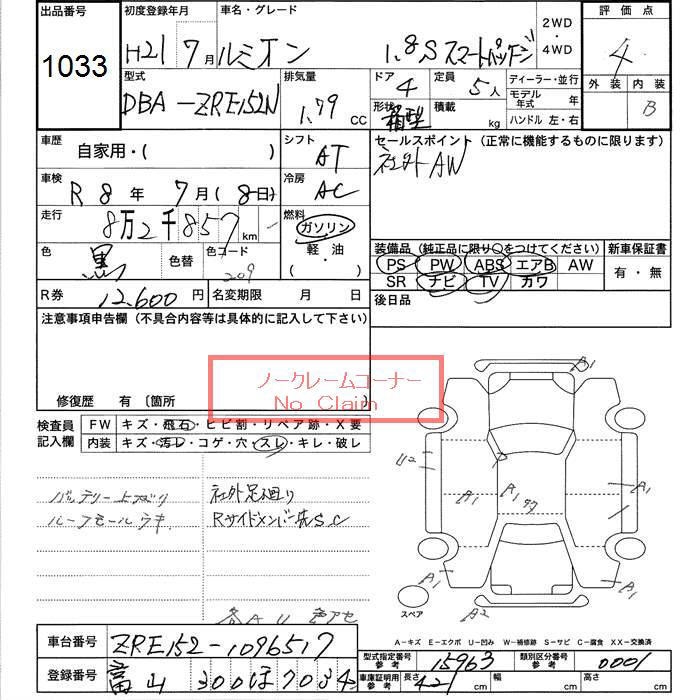 出品番号 初度登録年月 車名・グレード 2WD・4WD 評価点
1033 H21 7月 ルミオン 1.8S スマートパッケージ 4
型式 排気量 ドア 定員 ディーラー・並行 外装 内装
DBA-ZRE152N 1.79 CC 4 5人 モデル年式 年 B
形状 箱型 積載 kg ハンドル 左・右
車歴 自家用・( ) シフト AT セールスポイント (正常に機能するものに限ります)
社外AW
車検 R8年 7月 (8日) 冷房 AC
走行 8万2千857km 燃料 ガソリン・軽油 ( )
装備品 (純正品に限り○をつけてください) 新車保証書
色 黒 色替 色コード 209 PS PW ABS エアB AW 有・無
SR ナビ TV カワ
R券 12,600円 名変期限 月 日 後日品
注意事項申告欄 (不具合内容等は具体的に記入して下さい)
ノークレームコーナー
No Claim
修復歴 有 〔箇所
検査員記入欄 FW キズ・飛石・ヒビ割・リペア跡・X要
内装 キズ・汚レ・コゲ・穴・スレ・キレ・破レ
バッテリー上ガリ 社外足廻り
ルーフモールウキ Rサイドメンバー先SC
各AU 色アセ
A1
U2 P A1
A1 R1
A1 A1
スペア A2
A-キズ E-エクボ U-凹み W-補修跡 S-サビ C-腐食 XX-交換済
車台番号 ZRE152-1096517 型式指定番号 参考 15963 類別区分番号 参考 0001
登録番号 富山 300ほ7034 車庫証明用 参考 長さ 421 cm 幅 cm 高 cm